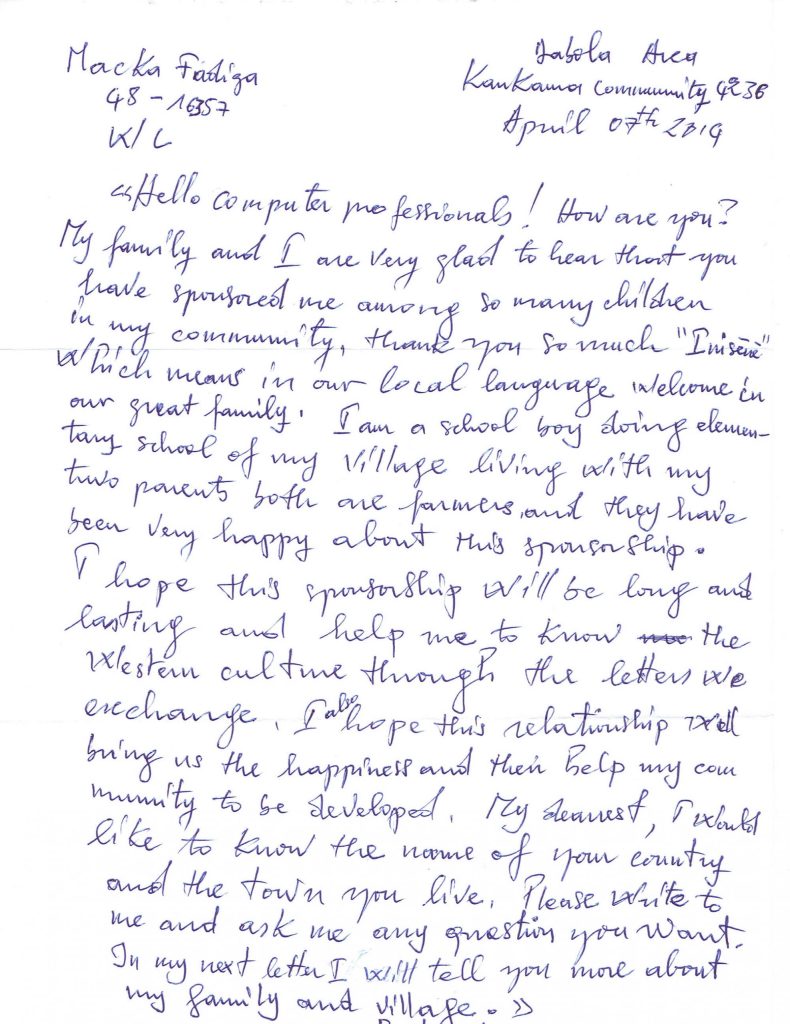 Macka Fadiga
48-16357
W/L
Dabola Area
Kankama community 4236
April 07th 2019
«Hello computer professionals! How are you?
My family and I are very glad to hear that you
have sponsored me among so many children
in my community, thank you so much "Inisènè"
Which means in our local language welcome in
our great family. I am a school boy doing elemen-
tary school of my village living with my
two parents both are farmers, and they have
been very happy about this sponsorship.
I hope this sponsorship will be long and
lasting and help me to know the
Western culture through the letters we
exchange. I also hope this relationship will
bring us the happiness and then help my com
munity to be developed. My dearest, I would
like to know the name of your country
and the town you live. Please write to
me and ask me any question you want.
In my next letter I will tell you more about
my family and village.»